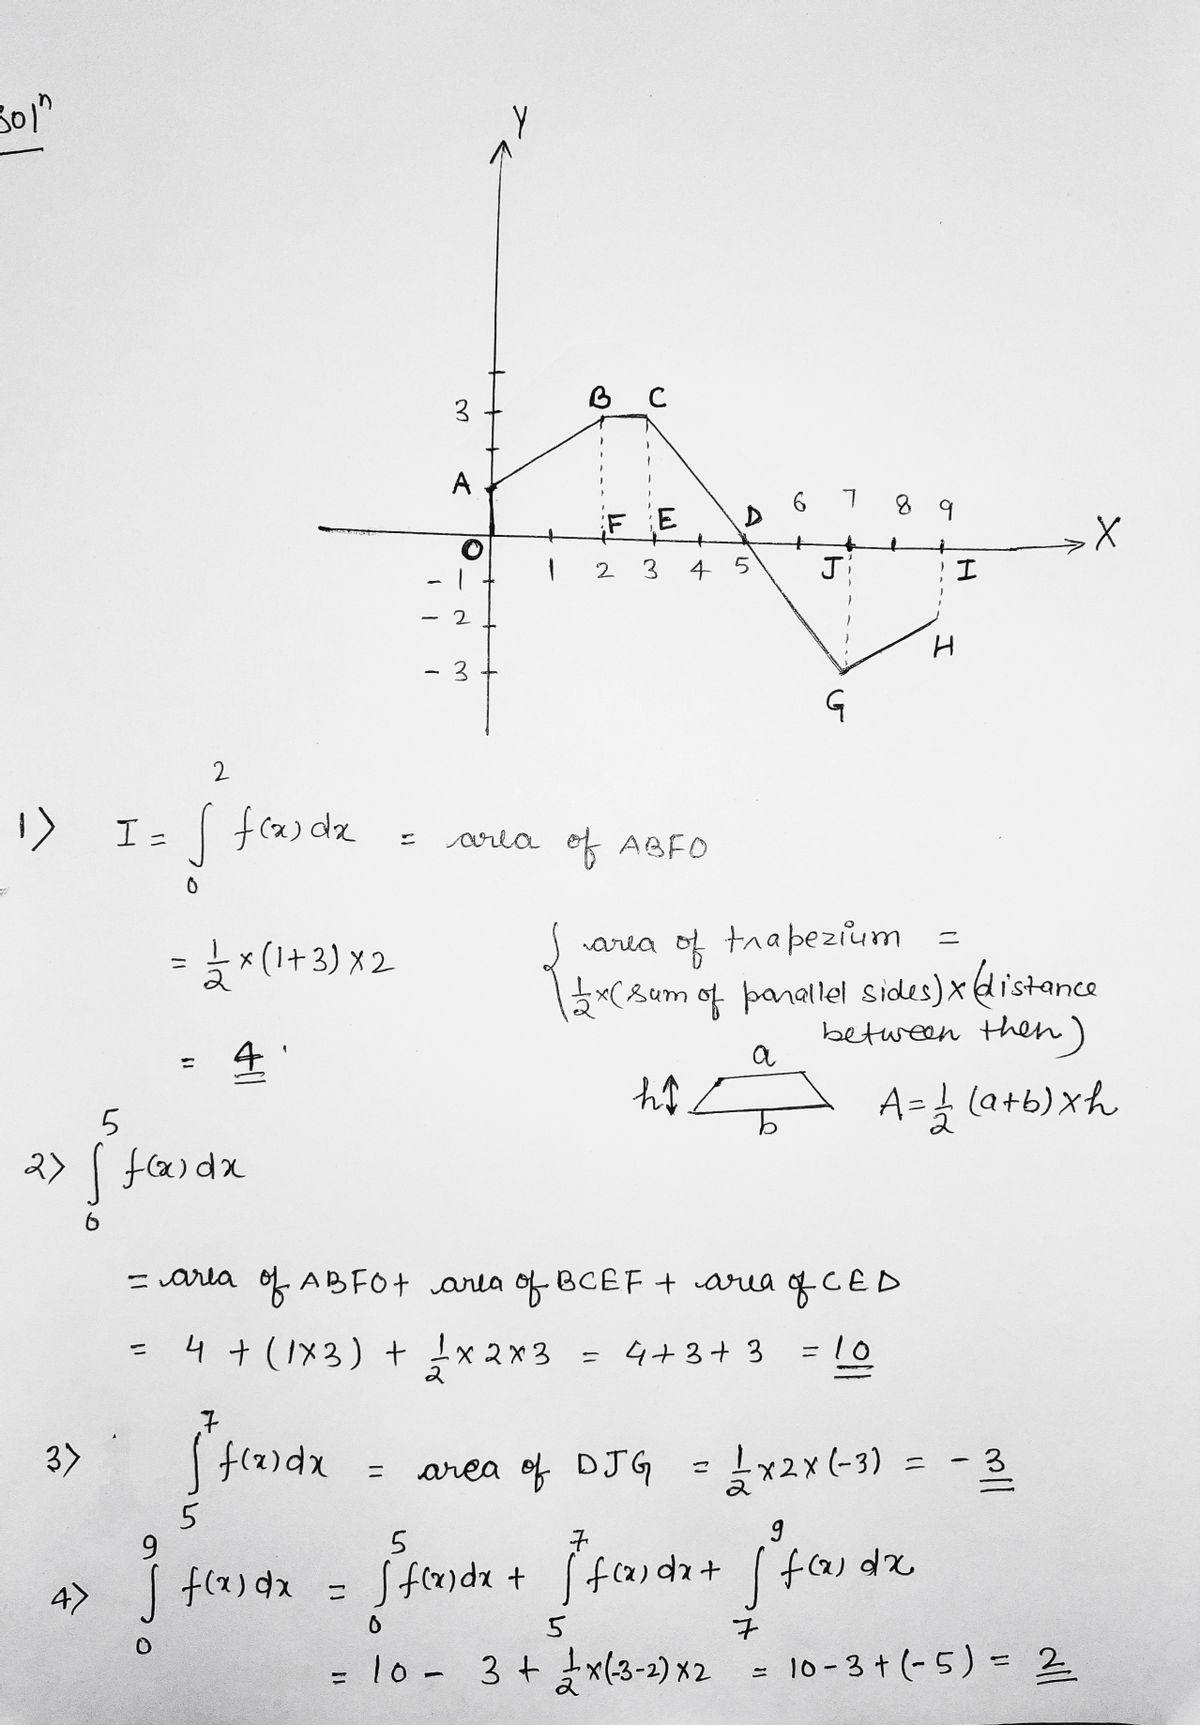 Solⁿ
Y
3
B C
A
6 7 8 9
F E D
X
O
1 2 3 4 5 J I
- 1
- 2
H
- 3
G
1> I = ∫₀² f(x) dx = area of ABFO
= 1/2 × (1+3) × 2
{ area of trapezium =
1/2 × (sum of parallel sides) × (distance
between then)
= 4
a
h↕
b
A = 1/2 (a+b) × h
2> ∫₀⁵ f(x) dx
= area of ABFO + area of BCEF + area of CED
= 4 + (1×3) + 1/2 × 2×3 = 4+3+3 = 10
3> ∫₅⁷ f(x) dx = area of DJG = 1/2 ×2×(-3) = - 3
4> ∫₀⁹ f(x) dx = ∫₀⁵ f(x) dx + ∫₅⁷ f(x) dx + ∫₇⁹ f(x) dx
= 10 - 3 + 1/2 ×(-3-2) ×2 = 10-3+(-5) = 2